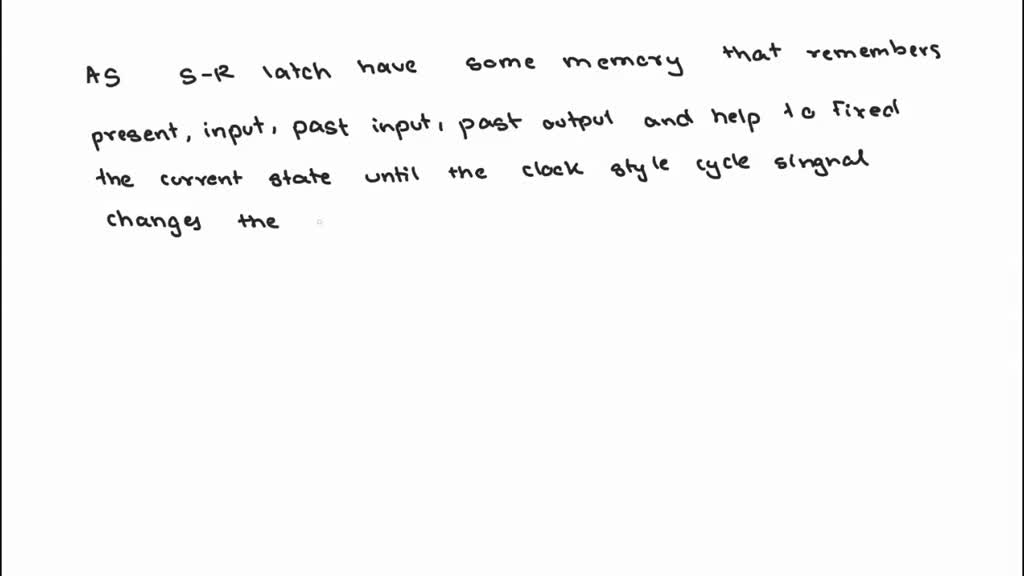 As S-R latch have some memory that remembers
present, input, past input, past output and help to fixed
the current state until the clock style cycle singnal
changes the